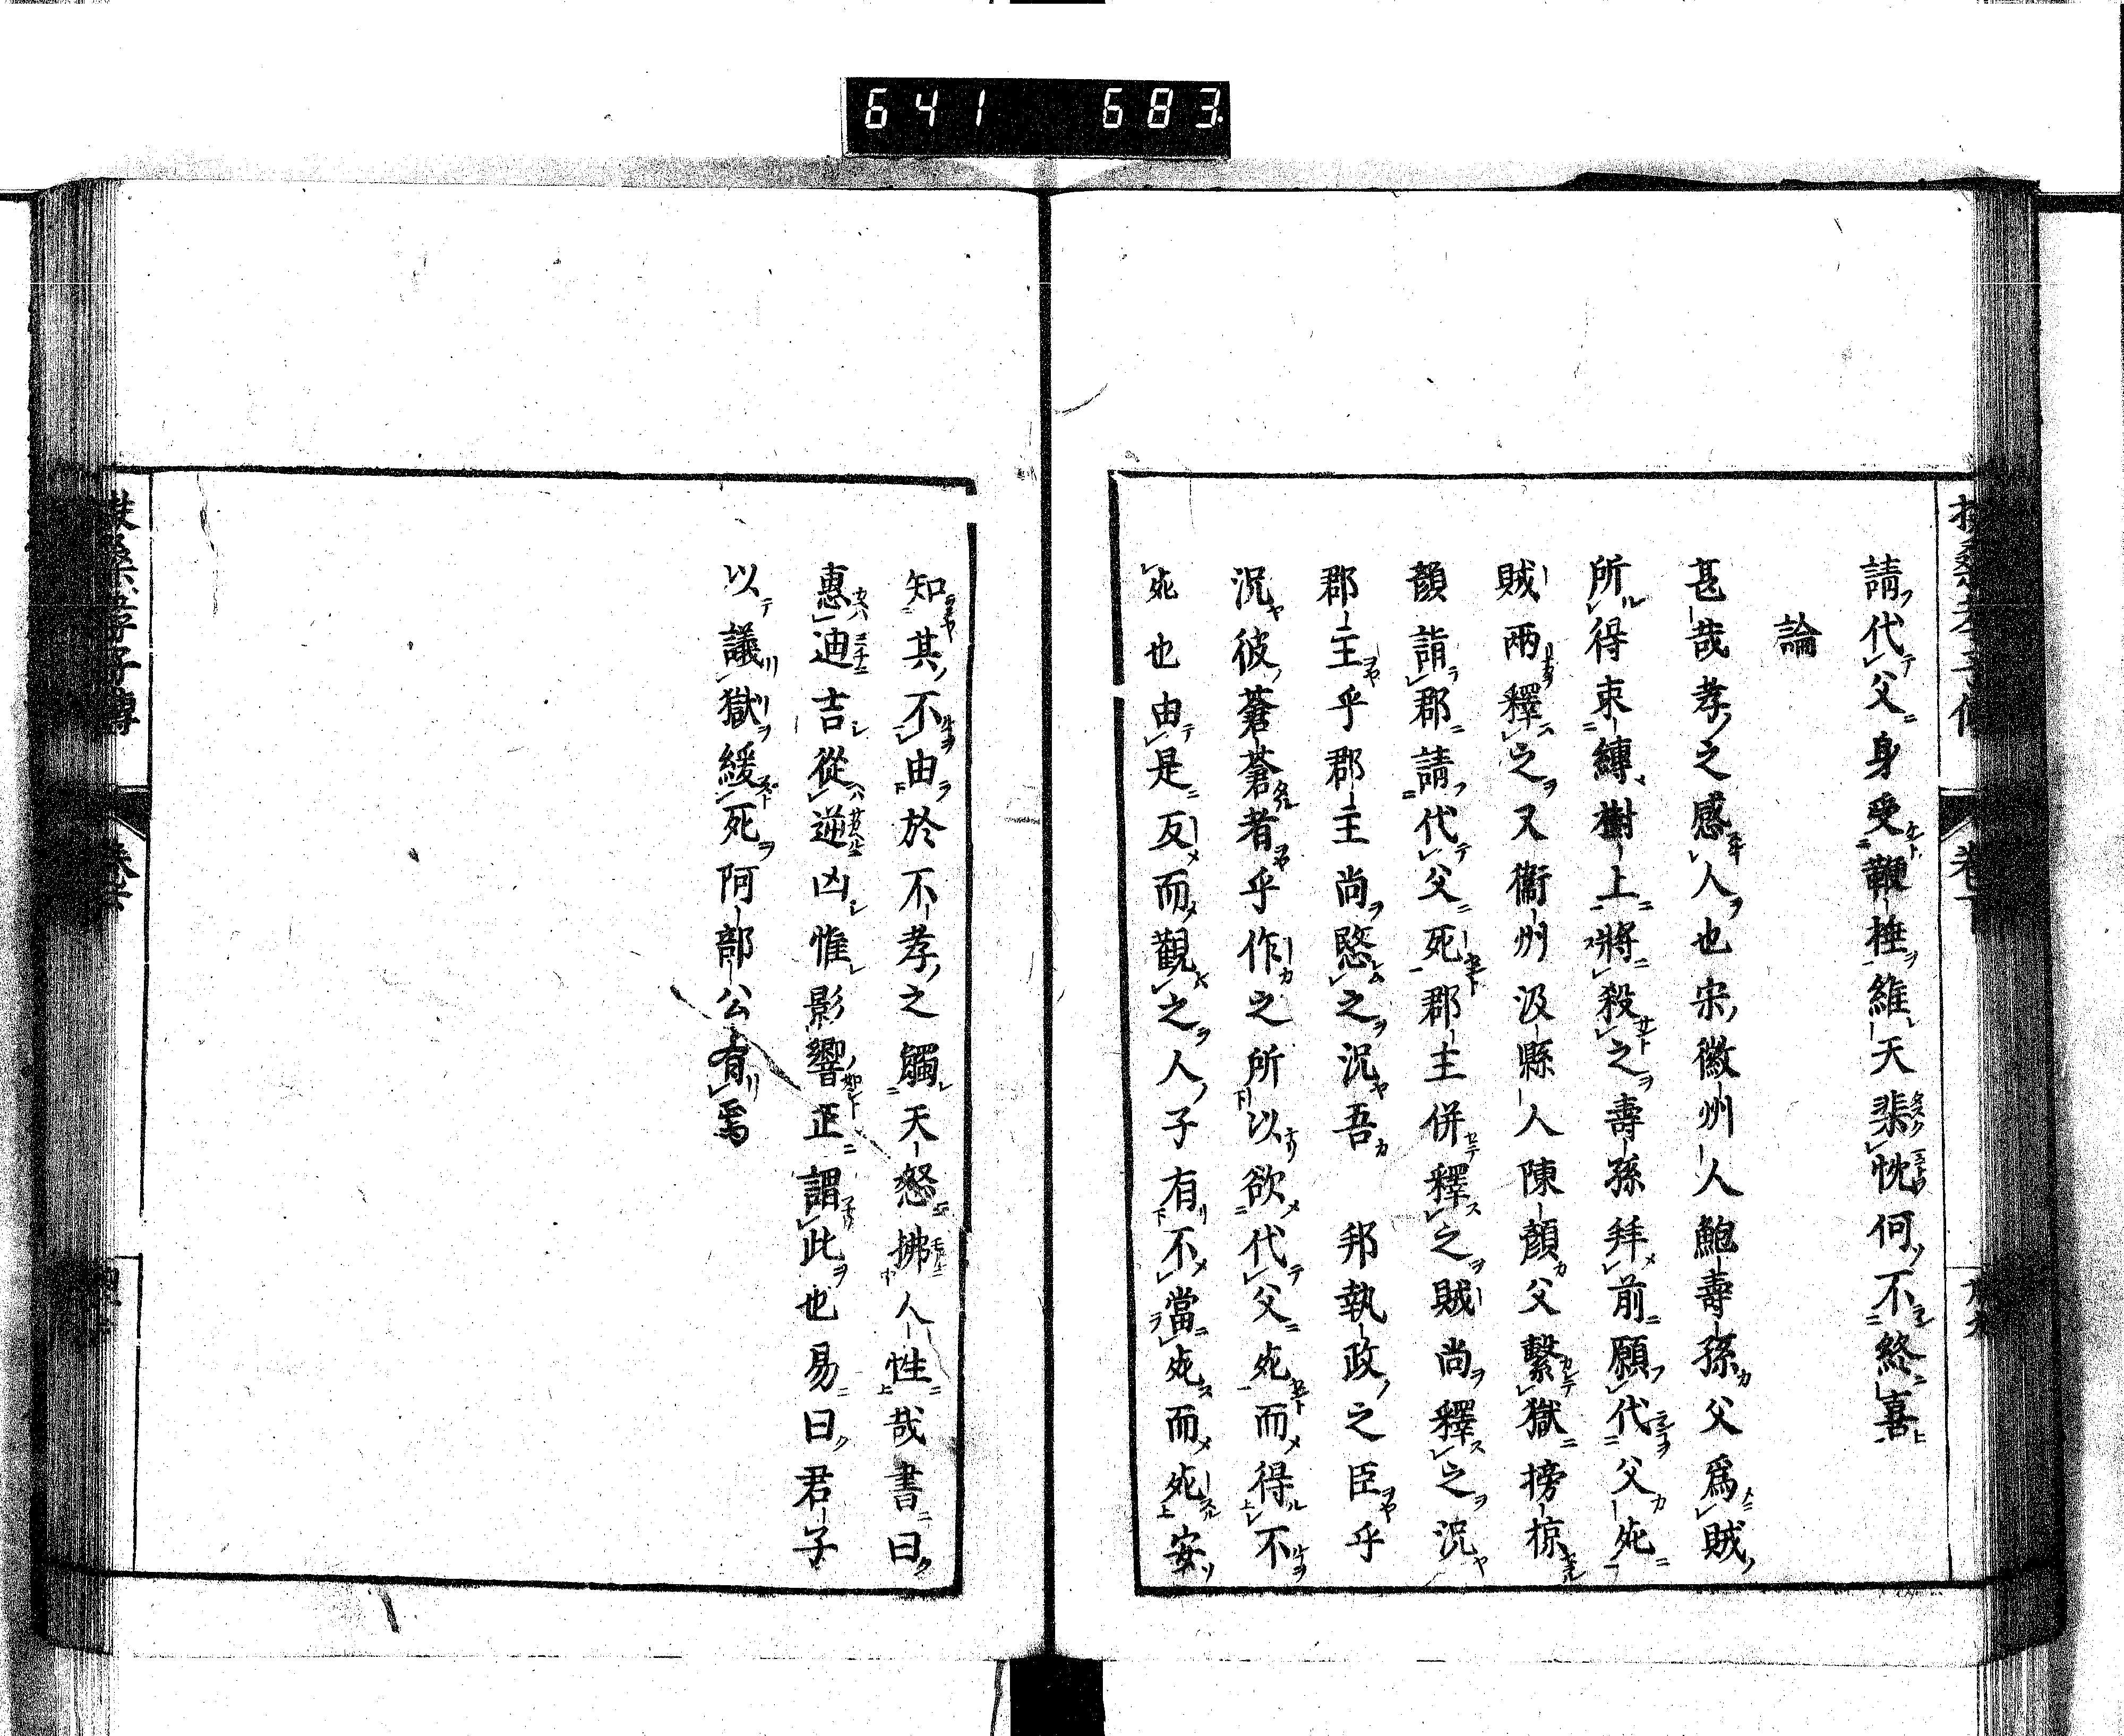 641 683
請代父身受鞭棰維天棐忱何不終喜
論
甚哉孝之感人也宋徽州人鮑壽孫父爲賊
所得束縛樹上將殺之壽孫拜前願代父死
賊兩釋之又衞州汲縣人陳顏父繫獄搒掠
顏詣郡請代父死郡主併釋之賊尚釋之況
郡主乎郡主尚愍之況吾　邦執政之臣乎
況彼蒼蒼者乎作之所以欲代父死而得不
死也由是反而觀之人子有不當死而死安
知其不由於不孝之觸天怒拂人性哉書曰
惠迪吉從逆凶惟影響正謂此也易曰君子
以議獄緩死阿部公有焉
孝子傳